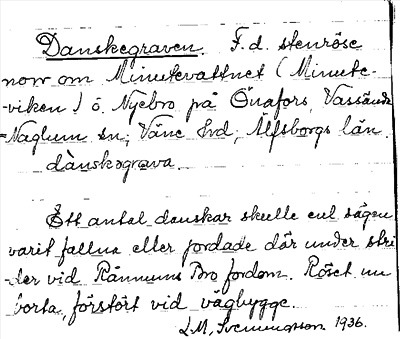 Danskegraven. F. d. stenröse
norr om Minutevattnet (Minute-
-viken) ö. Nyebro på Önafors, Vassända
=Naglum sn; Väne hrd, Älfsborgs län.
dànskəgrava.
Ett antal danskar skulle enl sägen
varit fallna eller jordade där under stri
-der vid Rånnums Bro fordom. Röset nu
borta, förstört vid vägbygge.
L.M. Svenungsson 1936.